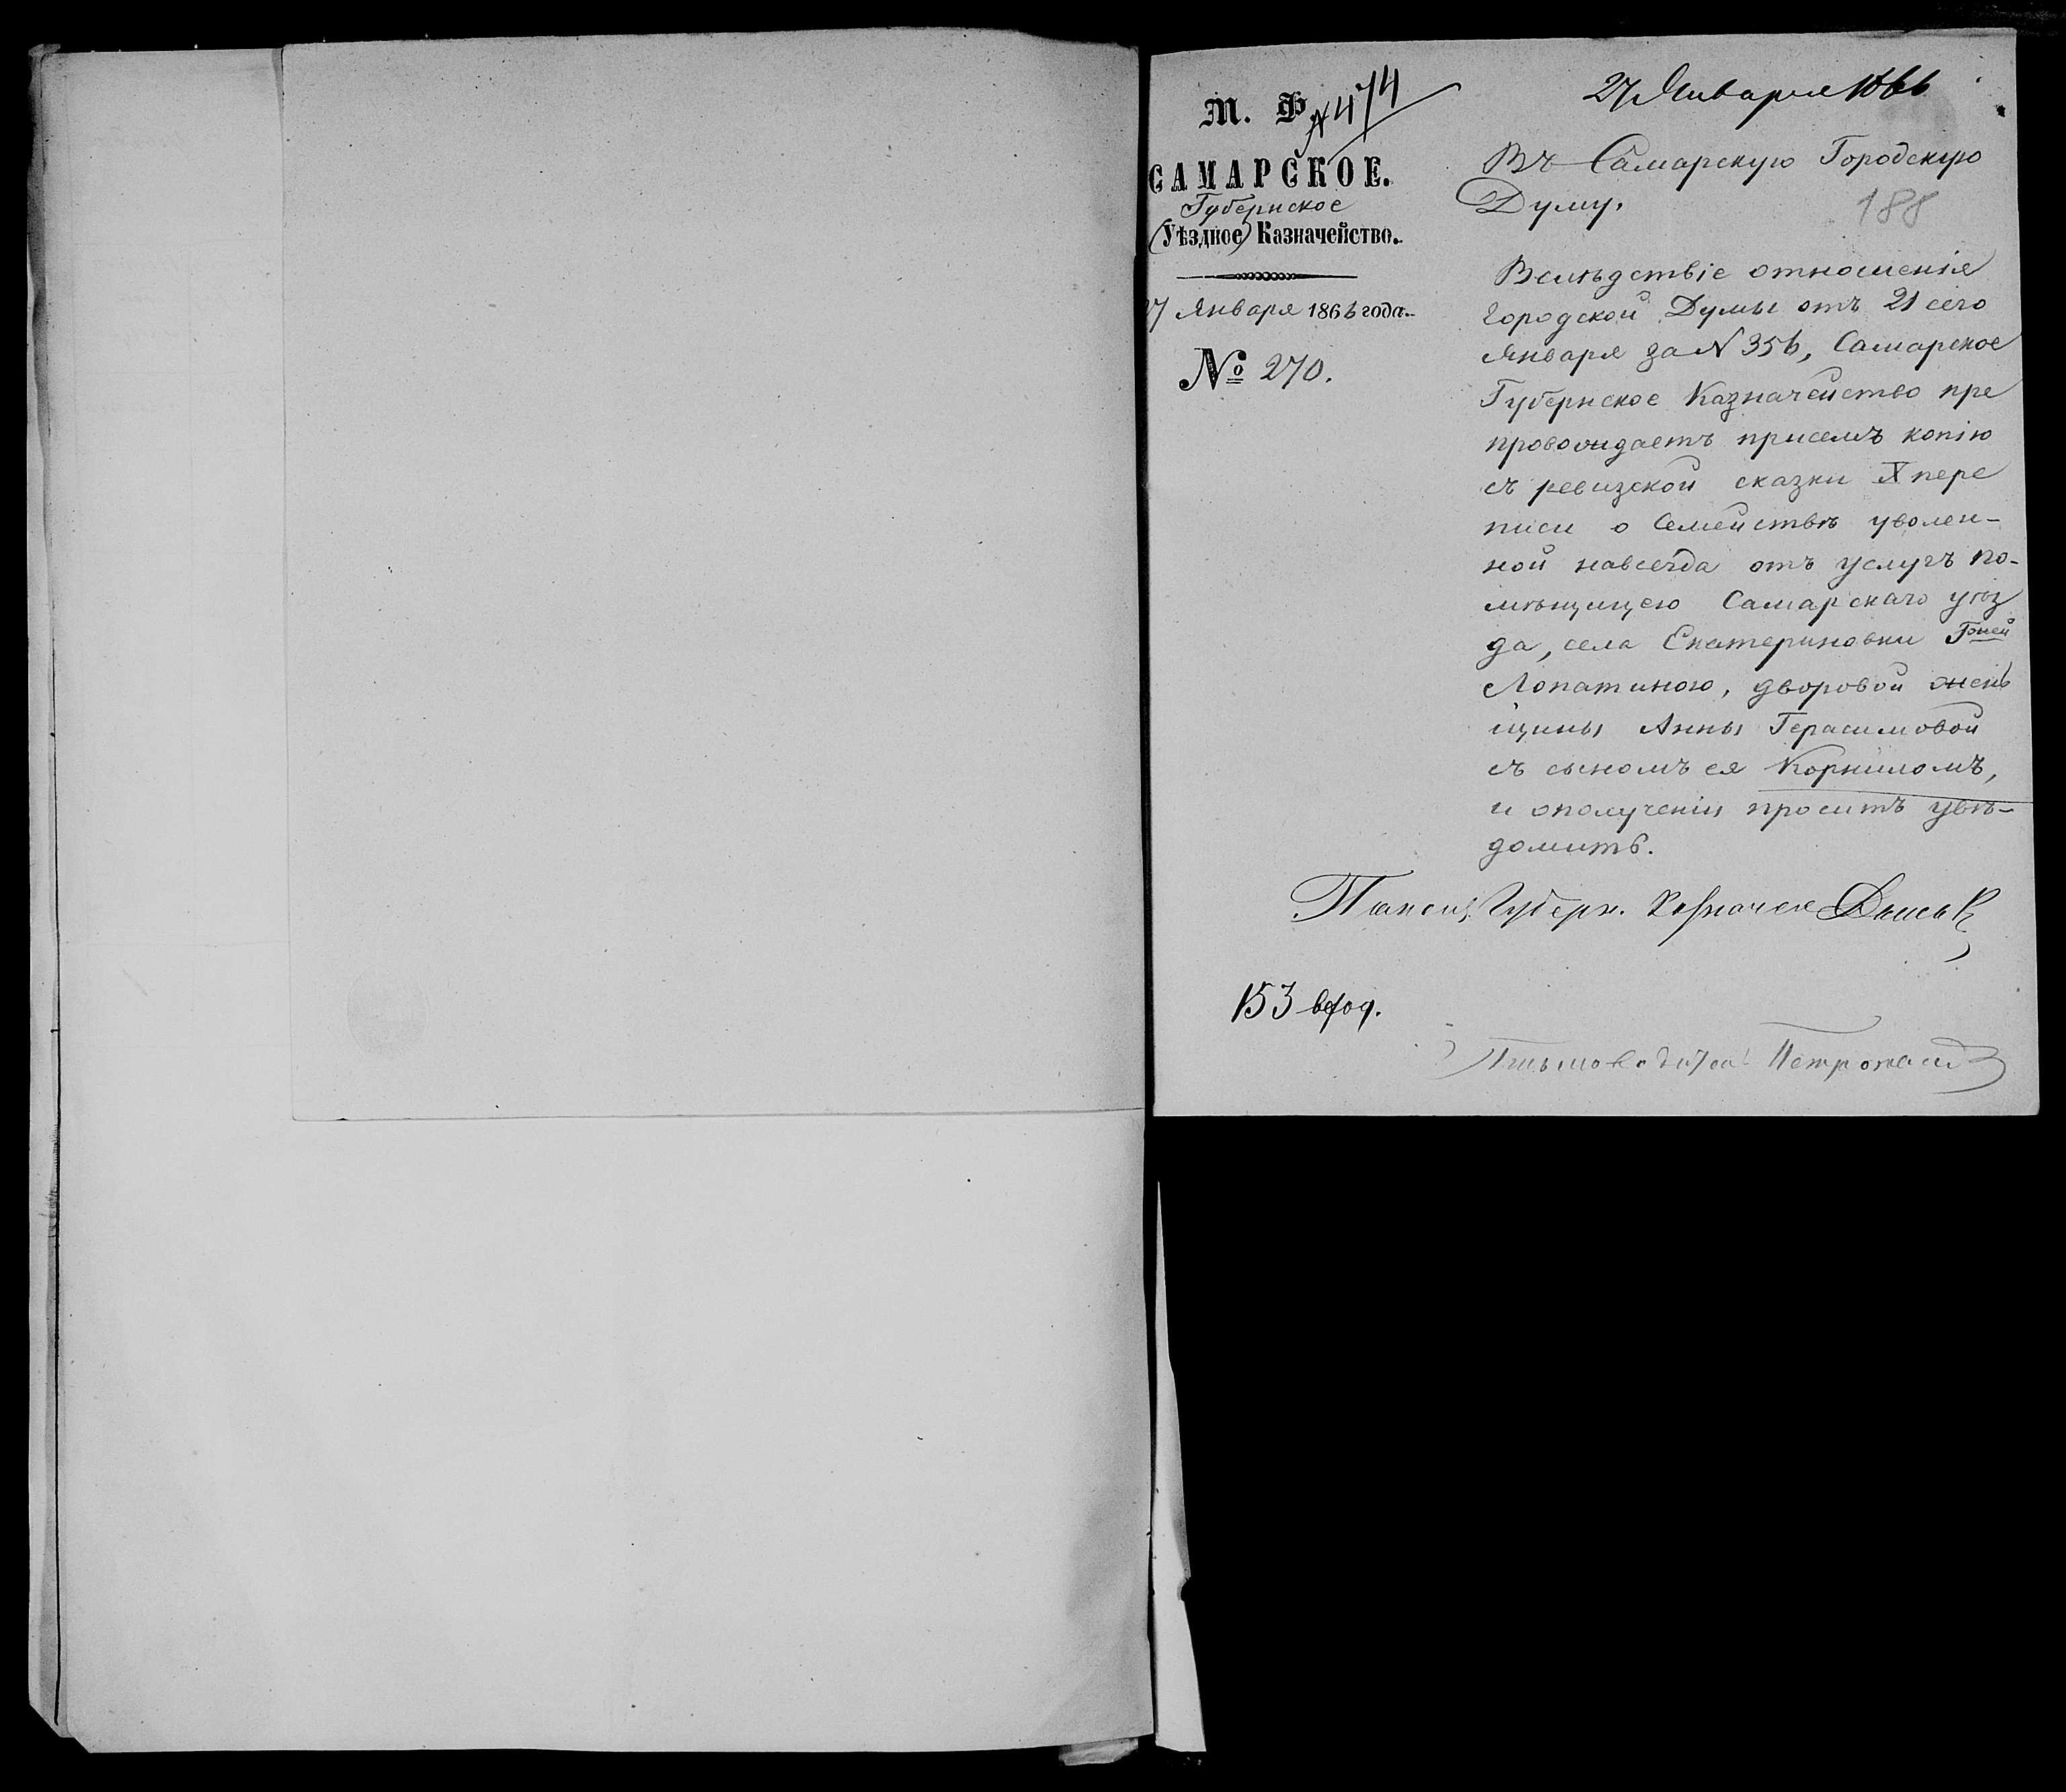 М. Ф.
N 474
САМАРСКОЕ.
Губернское
(Уѣздное) Казначейство.
27 Января 1866 года.
№ 270.
27 Января 1866
Въ Самарскую Городскую
Думу.
188
Вслѣдствіе отношенія
Городской Думы отъ 21 сего
Января за N 356, Самарское
Губернское Казначейство пре
провождаетъ присемъ копію
съ ревизской сказки X пере
писи о Семействѣ уволен-
ной навсегда отъ услугъ по-
мѣщицею Самарскаго уѣз
да, села Екатериновки Г-жей
Лопатиною, дворовой жен
щины Анны Герасимовой
съ сыномъ ея Корниломъ,
и ополученіи проситъ увѣ-
домить.
Губерн. Казначея
153 вход.
Письмоводитель